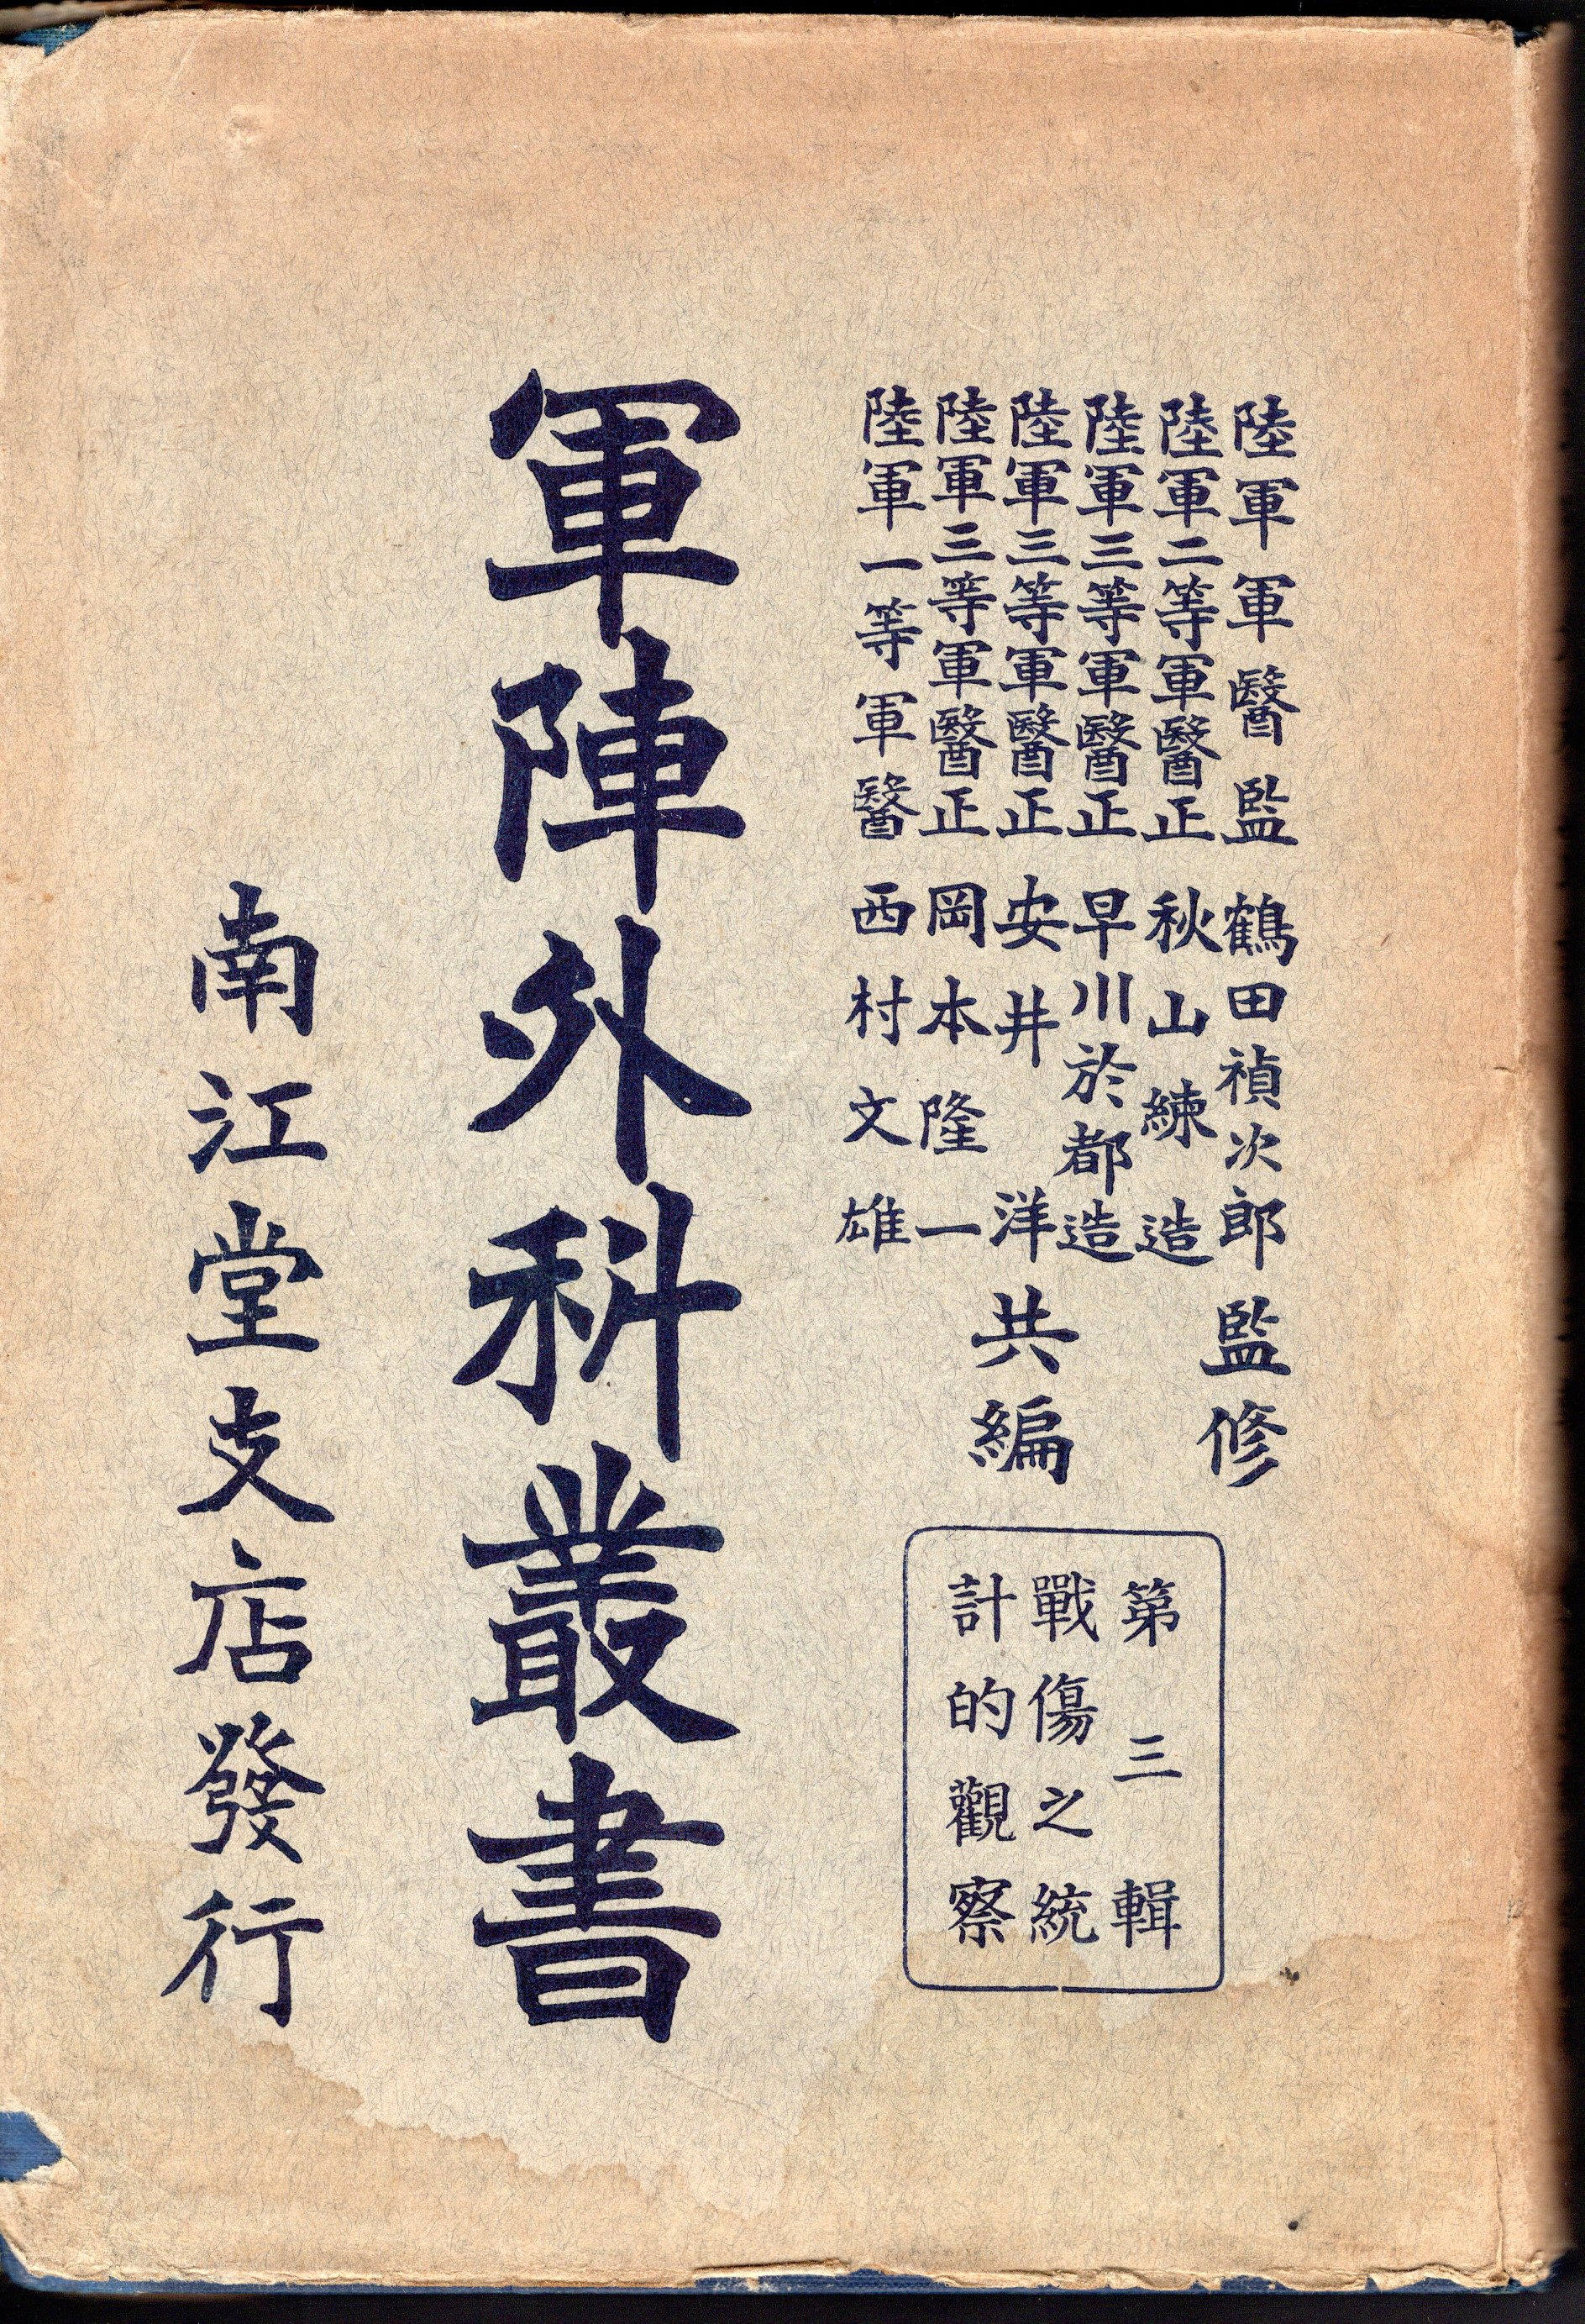 陸軍軍醫監 鶴田禎次郎 監修
陸軍二等軍醫正 秋山練造
陸軍三等軍醫正 早川於都造
陸軍三等軍醫正 安井洋
陸軍三等軍醫正 岡本隆一
陸軍一等軍醫 西村文雄
共編
第三輯
戰傷之統
計的觀察
軍陣外科叢書
南江堂支店發行